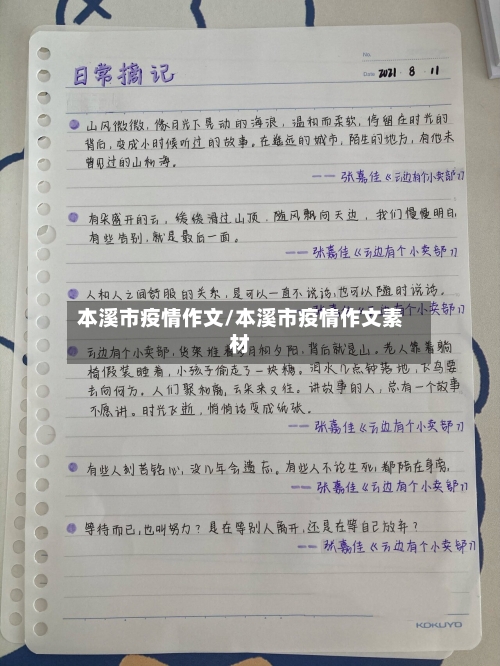 No.
Date 2021 · 8 · 11
日常摘记
山风微微，像月光下晃动的海浪，温和而柔软，停留在时光的
背后，变成小时候听过的故事。在遥远的城市，陌生的地方，有他未
曾见过的山和海。
—— 张嘉佳《云边有个小卖部》
有朵盛开的云，缓缓滑过山顶，随风飘向天边，我们慢慢明白，
有些告别，就是最后一面。
—— 张嘉佳《云边有个小卖部》
人和人之间舒服的关系，是可以一直不说话，也可以随时说话。
本溪市疫情作文/本溪市疫情作文素
材
云边有个小卖部，货架堆着
月和夕阳，背后就是山。老人靠着躺
椅假装睡着，小孩子偷走了一块糖。泪水几点钟落地，飞鸟要
去向何方。人们聚和离，云朵来又往。讲故事的人，总有一个故事
不愿讲。时光飞逝，悄悄话变成纸张。
—— 张嘉佳《云边有个小卖部》
有些人刻骨铭心，没几年会遗忘。有些人不论生死，都陪在身旁。
—— 张嘉佳《云边有个小卖部》
等待而已，也叫努力？是在等别人离开，还是在等自己放弃？
—— 张嘉佳《云边有个小卖部》
KOKUYO